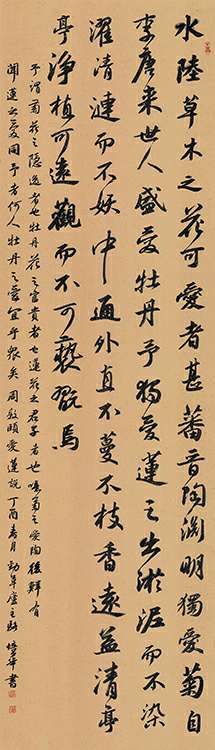 水陸草木之花可愛者甚蕃晉陶淵明獨愛菊自
李唐来世人盛愛牡丹予獨愛蓮之出淤泥而不染
濯清漣而不妖中通外直不蔓不枝香遠益清亭
亭淨植可遠觀而不可褻翫焉
予謂菊花之隱逸者也牡丹花之富貴者也蓮花之君子者也噫菊之愛陶後鮮有
聞蓮之愛同予者何人牡丹之愛宜乎衆矣周敦頤愛蓮說丁酉春月勁草廬 培華書